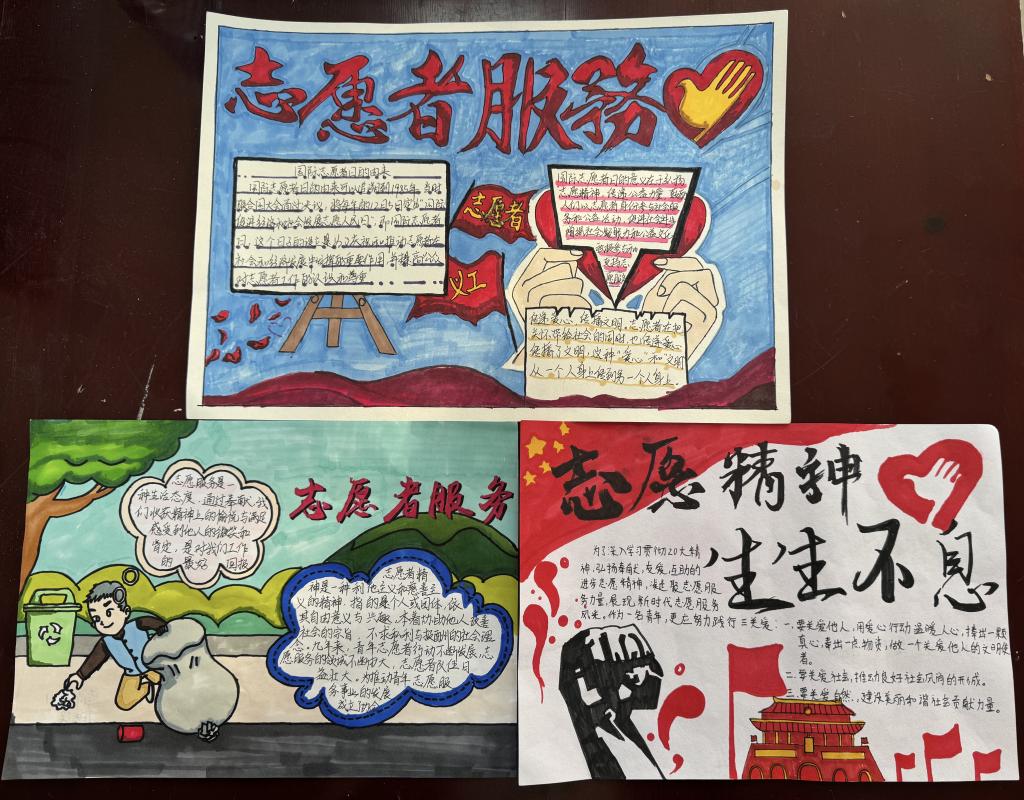 志愿者服務
国际志愿者日的由来
国际志愿者日的由来可以追溯到1985年,当时
联合国大会通过决议,将每年的12月5日定为"国际
促进经济和社会发展志愿人员日",即国际志愿者
日。这个日子的设立是为了庆祝和推动志愿者在
社会和经济发展中发挥的重要作用,并提高公众
对志愿者工作的认识和尊重
志愿者
义工
国际志愿者日的意义在于弘扬
志愿精神,传递公益力量,鼓励
人们以志愿者身份参与社会服
务和公益活动,促进社会和谐
增强社会凝聚力和公益文化
传递爱心,传播文明,志愿者在把
关怀带给社会的同时,也传递爱心
传播了文明,这种"爱心"和"文明"
从一个人身上传到另一个人身上。
志愿者服务
志愿服务是一
种生活态度,通过奉献,我
们收获精神上的愉悦与满足
感受到他人的微笑和
肯定,是对我们工作
的最好回报
志愿者精
神是一种利他主义和慈善主
义的精神,指的是个人或团体,依
其自由意义与兴趣,本着协助他人、改善
社会的宗旨,不求私利与报酬的社会理
念,九年来,青年志愿者行动不断发展,志
愿服务的领域不断扩大,志愿者队伍日
益壮大。为推动青年志愿服
务事业的发展
成立协会
志愿精神
生生不息
为了深入学习贯彻20大精
神,弘扬奉献,友爱,互助的
进步志愿精神,凝聚志愿服
务力量,展现新时代志愿服务
风采,作为一名青年,更应努力践行三关爱:
一、要关爱他人,用爱心行动温暖人心,捧出一颗
真心,拿出一点物资,做一个关爱他人的文明使
者。
二、要关爱社会,推动良好社会风尚的形成。
三、要关爱自然,建设美丽和谐社会贡献力量。